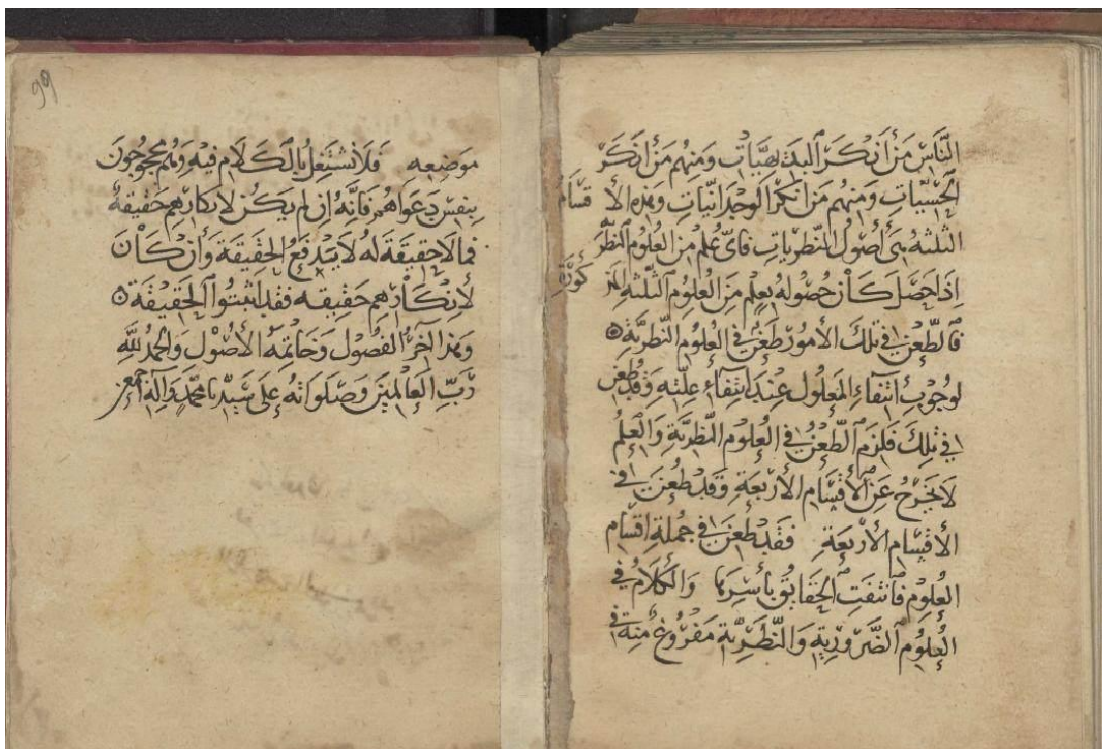 النَّاسِ مَنْ أَنْكَرَ البَدِيهِيَّاتِ وَمِنْهُم مَنْ أَنْكَرَ
الحِسِّيَّاتِ وَمِنْهُم مَنْ أَنْكَرَ الوِجْدَانِيَّاتِ وَهَذِهِ الأَقْسَامُ
الثلثة هِيَ أُصُولُ النَّظَرِيَّاتِ فَأَيُّ عِلْمٍ مِنَ العُلُومِ النَّظَرِ
إِذَا حَصَلَ كَانَ حُصُولُهُ بِعِلْمٍ مِنَ العُلُومِ الثَّلْثَةِ المَذْكُورَةِ
فَالطَّعْنُ فِي تِلْكَ الأُمُورِ طَعْنٌ فِي العُلُومِ النَّظَرِيَّةِ
لِوُجُوبِ انْتِفَاءِ المَعْلُولِ عِنْدَ انْتِفَاءِ عِلَّتِهِ وَقَدْ طُعِنَ
فِي تِلْكَ فَلَزِمَ الطَّعْنُ فِي العُلُومِ النَّظَرِيَّةِ وَالعِلْمُ
لَا يَخْرُجُ عَنِ الأَقْسَامِ الأَرْبَعَةِ وَقَدْ طُعِنَ فِي
الأَقْسَامِ الأَرْبَعَةِ فَقَدْ طُعِنَ فِي جُمْلَةِ أَقْسَامِ
العُلُومِ فَانْتَفَتِ الحَقَايِقُ بِأَسْرِهَا وَالكَلَامُ فِي
العُلُومِ الضَّرُورِيَّةِ وَالنَّظَرِيَّةِ مَفْرُوغٌ مِنْهُ فِي
99
مَوْضِعِه فَلَا نَشْتَغِلُ بِالْكَلَامِ فِيهِ وَهُم مَحْجُوجُونَ
بِنَفْسِ دَعْوَاهُمْ فَإِنَّهُ إِن لَم يَكُنْ لِإِنْكَارِهِم حَقِيقَةٌ
فَمَا لَا حَقِيقَةَ لَهُ لَا يَنْدَفَعُ الحَقِيقَةُ وَإِنْ كَانَ
لِإِنْكَارِهِم حَقِيقَه فَقَد أَثْبَتُوا الحَقِيقَةَ
وَهَذَا آخِرُ الفُصُولِ وَخَاتِمَةُ الأُصُولِ وَالحَمْدُ لِلَّهِ
رَبِّ العَالَمِينَ وَصَلَوَاتُهُ عَلَى سَيِّدِنَا مُحَمَّدٍ وَآلِهِ أَجْمَعِينَ